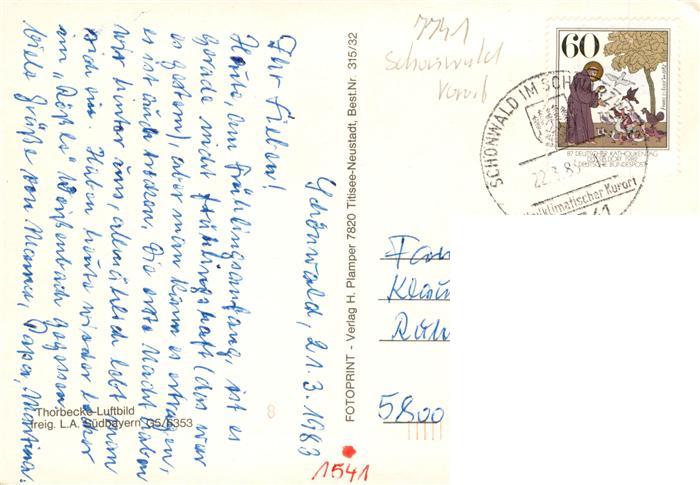 Schönwald, 21.3.1983
Ihr Lieben!
Heute, am Frühlingsanfang, ist es
gerade nicht frühlingshaft (das war
es gestern), aber man kann es ertragen,
es ist auch trocken. Die erste Nacht haben
wir hinter uns, allmählich lebt man
sich ein. Haben heute wieder lecker
im "Rößle" Weißenbach gegessen.
Viele Grüße von Mama, Papa, Martina.
Thorbecke-Luftbild
freig. L.A. Südbayern G5/5353
8
FOTOPRINT - Verlag H. Plamper 7820 Titisee-Neustadt, Best.Nr. 315/32
1541
7741
Schonwald
60
87. DEUTSCHER KATHOLIKENTAG
DÜSSELDORF 1982
DEUTSCHE BUNDESPOST
SCHÖNWALD IM SCHW
22.3.83
Heilklimatischer Kurort
Fam
Klau
5800